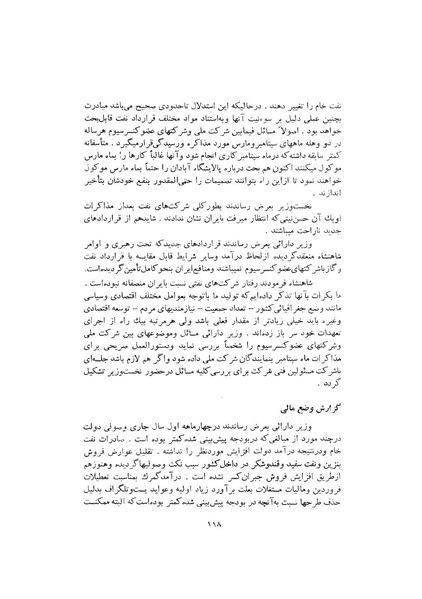 نفت خام را تغییر دهند . درحالیکه این استدلال تاحدودی صحیح می‌باشد مبادرت
بچنین عملی دلیل بر سوءنیت آنها وبه‌استناد مواد مختلف قرارداد نفت قابل‌بحث
خواهد بود . اصولاً مسائل فیمابین شرکت ملی وشرکتهای عضو کنسرسیوم هرساله
در دو وهله ماههای سپتامبرومارس مورد مذاکره ورسیدگی‌قرارمیگیرد . متأسفانه
کمتر سابقه داشته‌که درماه سپتامبر کاری انجام شود وآنها غالباً کارها را بماه مارس
موکول میکنند اکنون هم بحث درباره پالایشگاه آبادان را حتماً بماه مارس موکول
خواهند نمود تا ازاین راه بتوانند تصمیمات را حتی‌المقدور بنفع خودشان بتأخیر
اندازند .
نخست‌وزیر بعرض رساندند بطورکلی شرکت‌های نفت بعداز مذاکرات
اوپک آن حسن‌نیتی‌که انتظار میرفت بایران نشان ندادند . شایدهم از قراردادهای
جدید ناراحت میباشند .
وزیر دارائی بعرض رساندند قراردادهای جدیدکه تحت رهبری و اوامر
شاهنشاه منعقدگردیده ازلحاظ درآمد وسایر شرایط قابل مقایسه با قرارداد نفت
و گاز باشرکتهای‌عضو کنسرسیوم نمیباشد ومنافع‌ایران بنحوکامل‌تأمین گردیده‌است.
شاهنشاه فرمودند رفتار شرکت‌های نفتی نسبت بایران منصفانه نبوده‌است .
ما بکرات بآنها تذکر داده‌ایم‌که تولید ما باتوجه بعوامل مختلف اقتصادی وسیاسی
مانند وضع جغرافیائی‌کشور – تعداد جمعیت – نیازمندیهای مردم – توسعه اقتصادی
وغیره باید خیلی زیادتر از مقدار فعلی باشد ولی هرمرتبه بیک راه از اجرای
تعهدات خود سر باز زده‌اند . وزیر دارائی مسائل وموضوعهای بین شرکت ملی
وشرکتهای عضوکنسرسیوم را شخصاً بررسی نماید ودستورالعمل صریحی برای
مذاکرات ماه سپتامبر بنمایندگان شرکت ملی داده شود واگر هم لازم باشد جلسه‌ای
باشرکت مسئولین فنی شرکت برای بررسی‌کلیه مسائل درحضور نخست‌وزیر تشکیل
گردد .
گزارش وضع مالی
وزیر دارائی بعرض رساندند درچهارماهه اول سال جاری وصولی دولت
درچند مورد از مبالغی‌که دربودجه پیش‌بینی شده‌کمتر بوده است . صادرات نفت
خام ودرنتیجه درآمد دولت افزایش موردنظر را نداشته . تقلیل عوارض فروش
بنزین ونفت سفید وقندوشکر در داخل‌کشور سبب نکث وصولیها گردیده وهنوزهم
ازطریق افزایش فروش جبران‌کسر نشده است . درآمدگمرک بمناسبت تعطیلات
فروردین ومالیات مستغلات بعلت برآورد زیاد اولیه وعواید پست‌وتلگراف بدلیل
حذف طرحها نسبت به‌آنچه در بودجه پیش‌بینی شده کمتر بوده‌است‌که البته ممکنست
۱۱۸